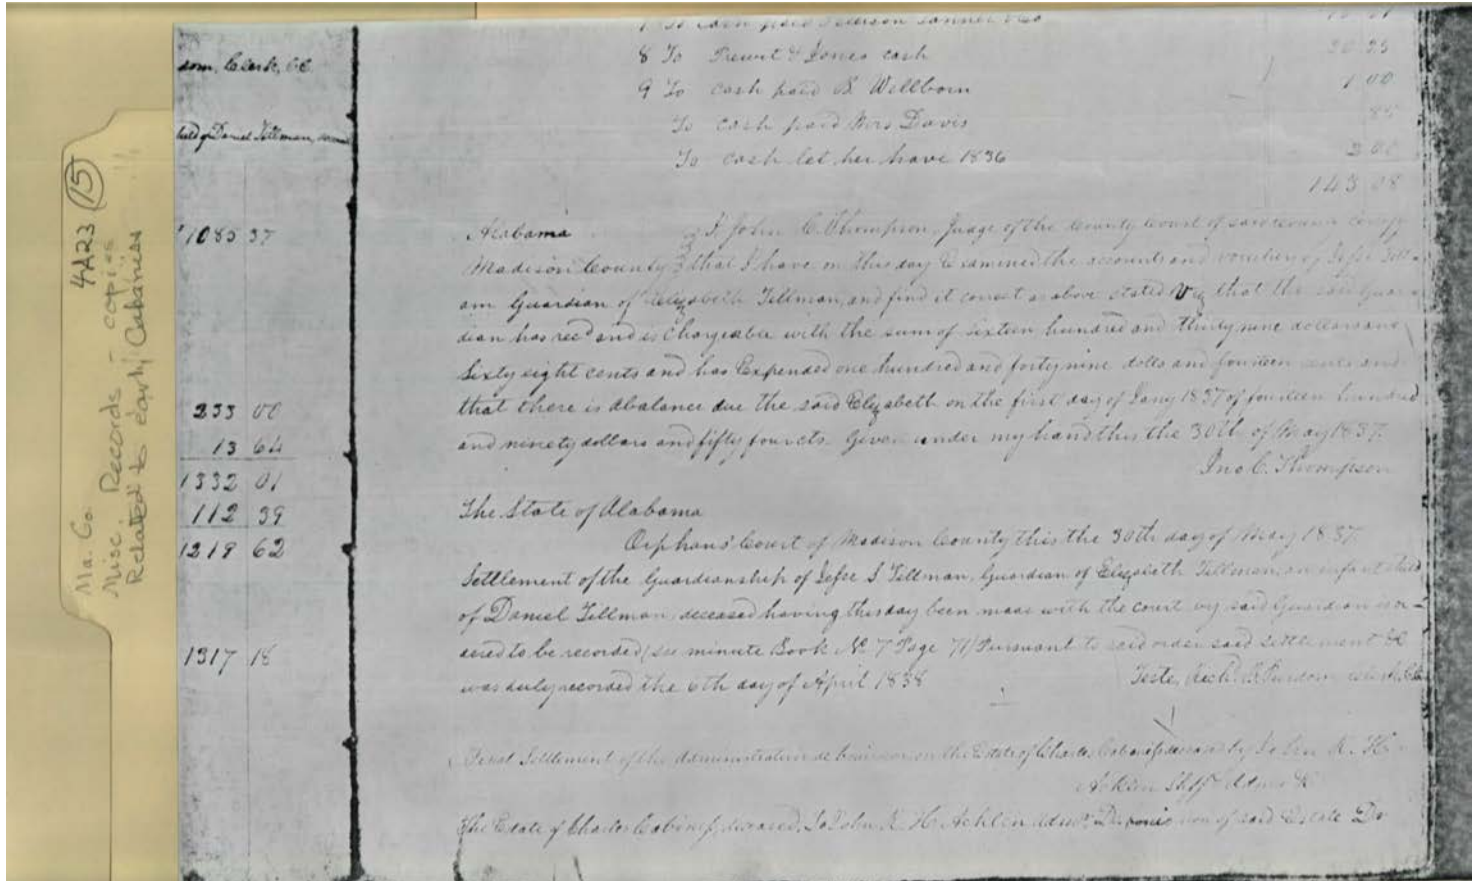 4A23 (15)
Ma. Co.
Misc. Records - copies
Related to early Cabaniss
dom, Clerk, CC
child of Daniel Tillman,
1085 37
233 00
13 64
1332 01
112 39
1219 62
1317 18
8 To Prewit & Jones cash 20 25
9 To cash paid B. Wellborn 1 00
To cash paid Mrs Davis 85
To cash let her have 1836
143 08
Alabama I John C. Thompson, Judge of the County Court of said County
Madison County that I have on this day Examined the accounts and vouchers of Jesse Till
am Guardian of Elizabeth Tillman, and find it correct as above stated Viz that the said Guar
dian has recd and is Chargeable with the sum of sixteen hundred and thirty nine dollars and
Sixty eight cents and has Expended one hundred and forty nine dolls and fourteen cents and
that there is a balance due the said Elizabeth on the first day of Jany 1837 of fourteen hundred
and ninety dollars and fifty four cts. Given under my hand this the 30th of May 1837.
Jno C. Thompson
The State of Alabama
Orphans' Court of Madison County this the 30th day of May 1837.
Settlement of the Guardianship of Jesse S Tillman, Guardian of Elizabeth Tillman, an infant child
of Daniel Tillman, deceased having this day been made with the court by said Guardian is or
dered to be recorded (see minute Book No 7 Page 71) Pursuant to said order said settlement &c
was duly recorded the 6th day of April 1838 Teste, Rich. B. Purdom
Final Settlement of the Administration de bonis non on the Estate of Charles Cabaniss deceased by John R. H.
Acklen Shff Admr &
The Estate of Charles Cabaniss, deceased, To John R. H. Acklin Admr De bonis non of said Estate Dr